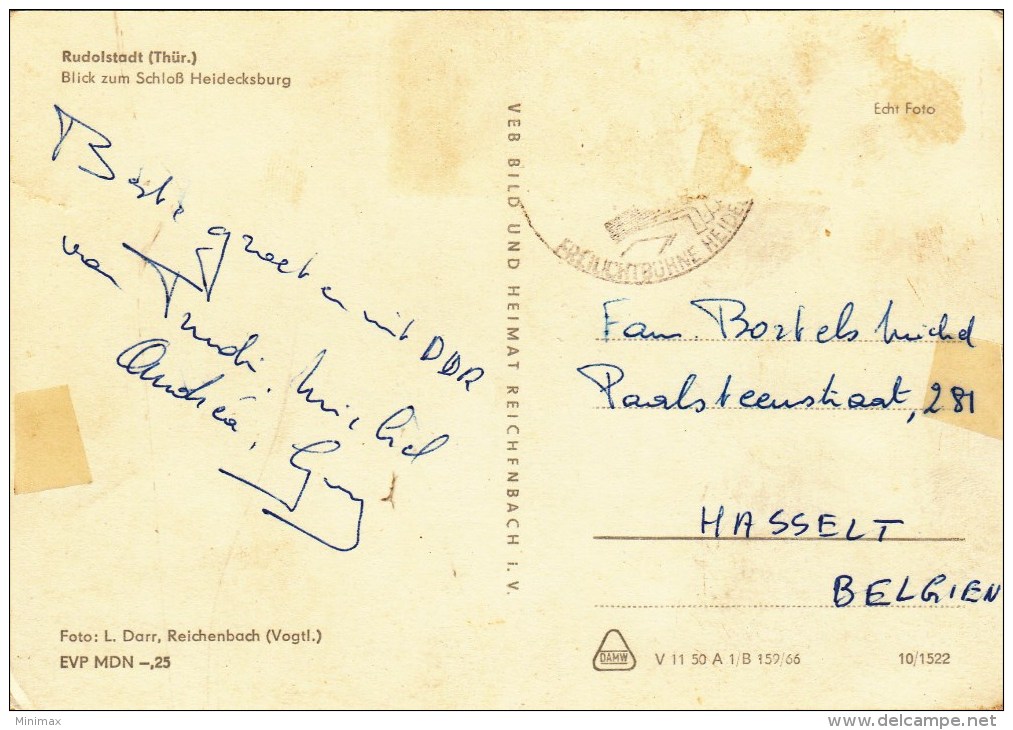 Rudolstadt (Thür.)
Blick zum Schloß Heidecksburg
Echt Foto
Beste groeten uit DDR
van Trudi. Michel
Andréa, Guy
VEB BILD UND HEIMAT REICHENBACH i. V.
FREILICHTBÜHNE HEIDE
Fam. Bortels Michel
Paalsteenstraat, 281
HASSELT
BELGIEN
Foto: L. Darr, Reichenbach (Vogtl.)
EVP MDN –,25
DAMW
V 11 50 A 1/B 159/66
10/1522
Minimax
delcampe.net